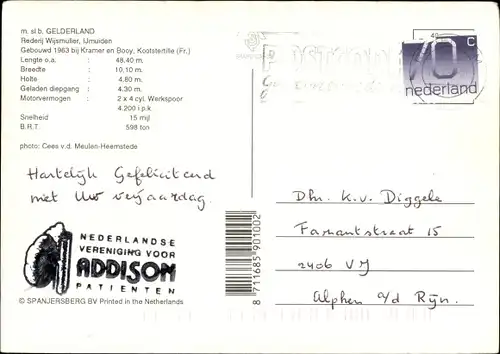 m. sl.b. GELDERLAND
Rederij Wijsmuller, IJmuiden
Gebouwd 1963 bij Kramer en Booy, Kootstertille (Fr.)
Lengte o.a. : 48.40 m.
Breedte : 10.10 m.
Holte : 4.80 m.
Geladen diepgang : 4.30 m.
Motorvermogen : 2 x 4 cyl. Werkspoor
4.200 i.p.k
Snelheid : 15 mijl
B.R.T. : 598 ton
photo: Cees v.d. Meulen-Heemstede
70 c
nederland
Hartelijk Gefeliciteerd
met Uw verjaardag.
Dhr. K.v. Diggele
Farantstraat 15
2406 VJ
Alphen a/d Rijn.
NEDERLANDSE
VERENIGING VOOR
ADDISON
PATIENTEN
8 711685 901002
© SPANJERSBERG BV Printed in the Netherlands